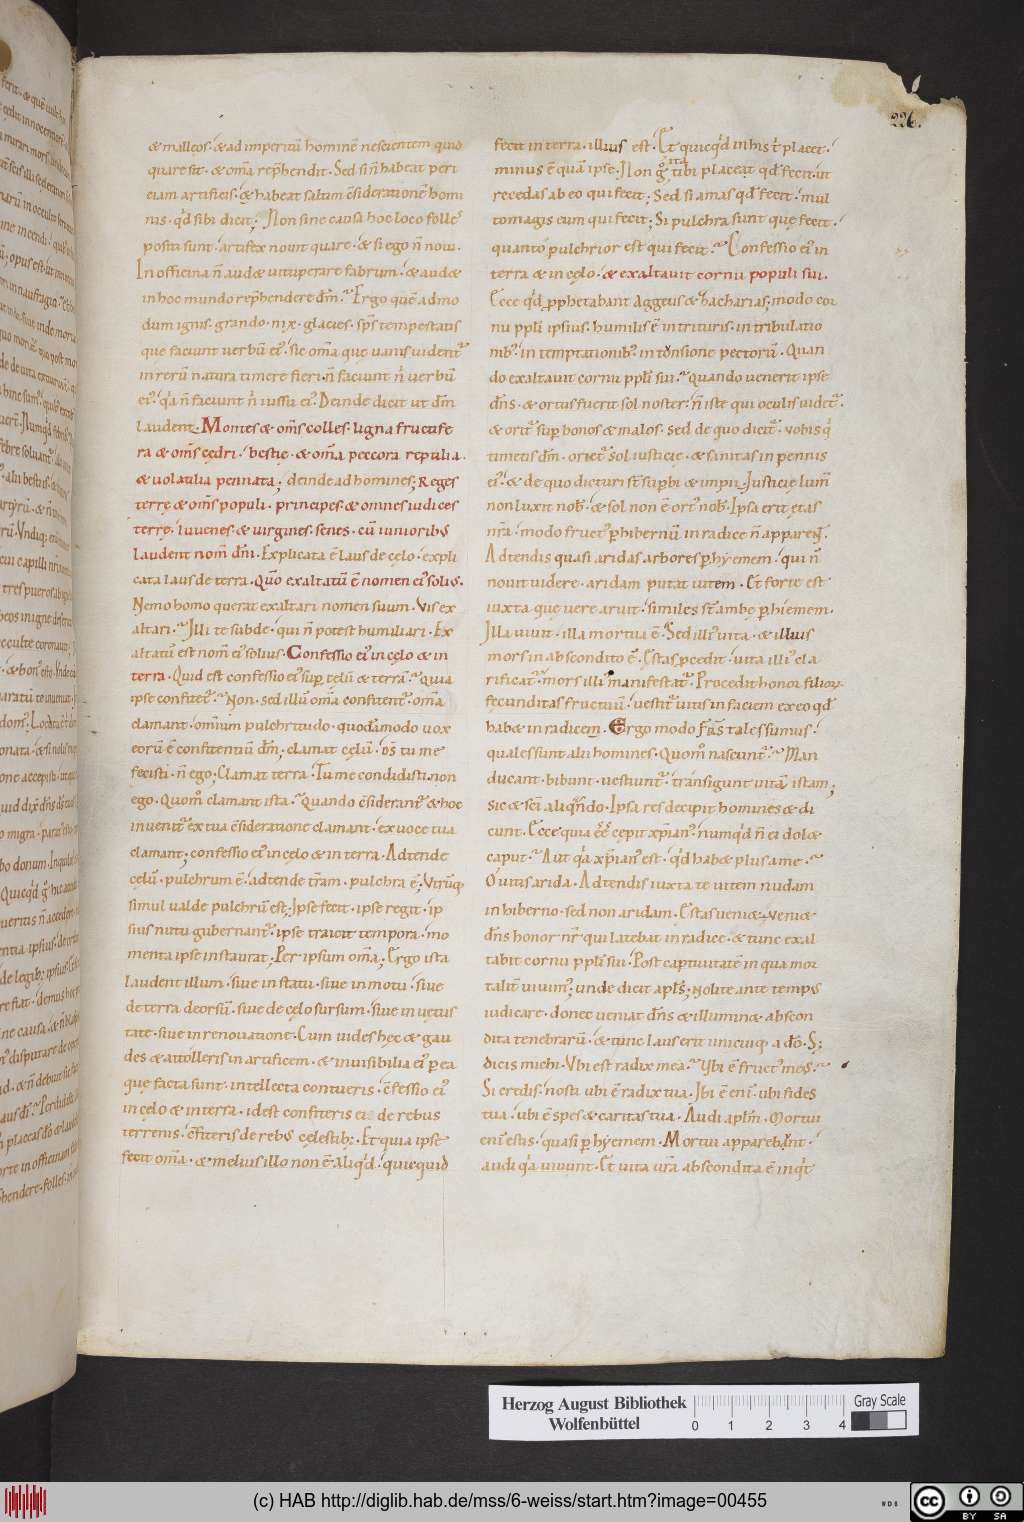 226.
& malleos · & ad imperitū hominē nescientem quid
quare sit · & om̄a rep̄hendit · Sed si n̄ habeat peri
ciam artificis · & habeat saltim c̄siderationē homi
nis · qd̄ sibi dicit; Non sine causa hoc loco folles
positi sunt · artifex nouit quare · & si ego n̄ noui ·
In officina n̄ aud& uituperare fabrum · & aud&
in hoc mundo rep̄hendere dm̄ · Ergo quē admo
dum ignis · grando · nix · glacies · sp̄s tempestatis
que faciunt uerbū ei' · sic om̄a que uanis uident'
in rerū natura timere fieri · n̄ faciunt n̄ uerbū
ei' · q̇a n̄ faciunt n̄ iussū ei' · Deinde dicit ut dm̄
laudent · Montes & om̄s colles · ligna fructife
ra & om̄s cędri · bestię · & om̄a peccora reptilia ·
& uolatilia pennata; deinde ad homines; Reges
terrę & om̄s populi · principes · & omnes iudices
terrę · iuuenes · & uirgines · senes · cū iunioribs
laudent nom̄ dn̄i · Explicata ē laus de cęlo · expli
cata laus de terra · Qm̄o exaltatū ē nomen ei' solis ·
Nemo homo querat exaltari nomen suum · Vis ex
altari · Illi te subde · qui n̄ potest humiliari · Ex
altatū est nom̄ ei' solius · Confessio ei' in cęlo & in
terra · Quid est confessio ei' sup̄ cęlū & terrā · Quia
ipse confitet' · Non · sed illū om̄a confitent' · om̄a
clamant · omnium pulchritudo · quodā modo uox
eorū ē confitentiū dm̄; clamat cęlū · ds̄ tu me
fecisti · n̄ ego; Clamat terra · Tu me condidisti · non
ego · Quom̄ clamant ista · Quando c̄siderant' & hoc
inuenit' ex tua c̄sideratione clamant · ex uoce tua
clamant; confessio ei' in cęlo & in terra · Adtende
cęlū · pulchrum ē · adtende tr̄am · pulchra ē; Utrūq;
simul ualde pulchrū est; Ipse fecit · ipse regit · ip
sius nutu gubernant' · ipse traicit tempora · mo
menta ipse instaurat; Per ipsum om̄a; Ergo ista
laudent illum · siue in statu · siue in motu · siue
de terra deorsū · siue de cęlo sursum · siue in uetus
tate · siue in renouatione · Cum uides hęc & gau
des & attolleris in artificem · & inuisibilia ei' p̄ ea
quę facta sunt · intellecta contueris · c̄fessio ei'
in cęlo & in terra · id est confiteris ei de rebus
terrenis · c̄fiteris de rebs cęlestib; · Et quia ipse
fecit om̄a · & melius illo non ē aliqd̄ · quicquid
fecit in terra · illius est · Et quicqd̄ in his t̄ plac&ͭ ·
minus ē quā ipse · Non gͦ ita tibi placeat qd̄ fecit · ut
recedas ab eo qui fecit; Sed si amas qd̄ fecit · mul
to magis eum qui fecit; Si pulchra sunt quę fecit ·
quanto pulchrior est qui fecit · Confessio ei' in
terra & in cęlo · & exaltauit cornu populi sui ·
Ecce qd̄ p̄phetabant Aggeus & zacharias; modo cor
nu pp̄li ipsius · humilis ē in trituris · in tribulatio
nib' · in temptationib' · in tunsione pectorū · Quan
do exaltauit cornu pp̄li sui · Quando uenerit ipse
dn̄s · & ortus fuerit sol noster · n̄ iste qui oculis uidet'
& orit' sup̄ bonos & malos · sed de quo dicit' · uobis q̇
timetis dm̄ · oriet' sol iusticię · & sanitas in pennis
ei' · & de quo dicturi st̄ supbi & impii · Iusticię lum̄
non luxit nob' · & sol non ē ort' nob' · Ipsa erit ętas
nr̄a · modo fruct' p̄ hibernū in radice n̄ apparent ·
Adtendis quasi aridas arbores p̄ hyemem · qui n̄
nouit uidere · aridam putat uitem · Et forte est
iuxta · quę uere aruit · similes st̄ ambę p̄ hiemem ·
Illa uiuit · illa mortua ē · Sed illi' uita · & illius
mors in abscondito ē · Estas p̄cedit · uita illi' cla
rificat' · mors illi' manifestat' · Procedit honor filior
fęcunditas fructuū · uestit' uitis in faciem ex eo qd̄
hab& in radicem · Ergo modo fr̄s tales sumus ·
quales sunt alii homines · Quom̄ nascunt' · Man
ducant · bibunt · uestiunt' · transigunt uitā istam;
sic & sc̄i aliqn̄do · Ipsa res decipit homines & di
cunt · Ecce quia ēē cępit xp̄ian' · numqd̄ n̄ ei dol&
caput · Aut q̇a xp̄ian' est · qd̄ hab& plus a me ·
O uitis arida · Adtendis iuxta te uitem nudam
in hiberno · sed non aridam · Estas ueni& · ueni&
dn̄s honor nr̄ · qui latebat in radice · & tunc exal
tabit cornu pp̄li sui · Post captiuitatē in qua mor
talit̄ uiuim'; unde dicit apl's; Nolite ante temps
iudicare · donec ueniat dn̄s & illumin& · abscon
dita tenebrarū · & tunc laus erit unicuiq; a dō · S;
dicis michi · Vbi est radix mea · Vbi ē fruct' meus ·
Si credis · nosti ubi ē radix tua · Ibi ē eni · ubi fides
tua · ubi ē spes & caritas tua · Audi aplm̄ · Mortui
eni estis · quasi p̄ hyemem · Mortui apparebant ·
audi q̇a uiuunt · Et uita ur̄a abscondita ē inqt
Herzog August Bibliothek
Wolfenbüttel
0 1 2 3 4
Gray Scale
(c) HAB http://diglib.hab.de/mss/6-weiss/start.htm?image=00455
WDB
cc BY SA